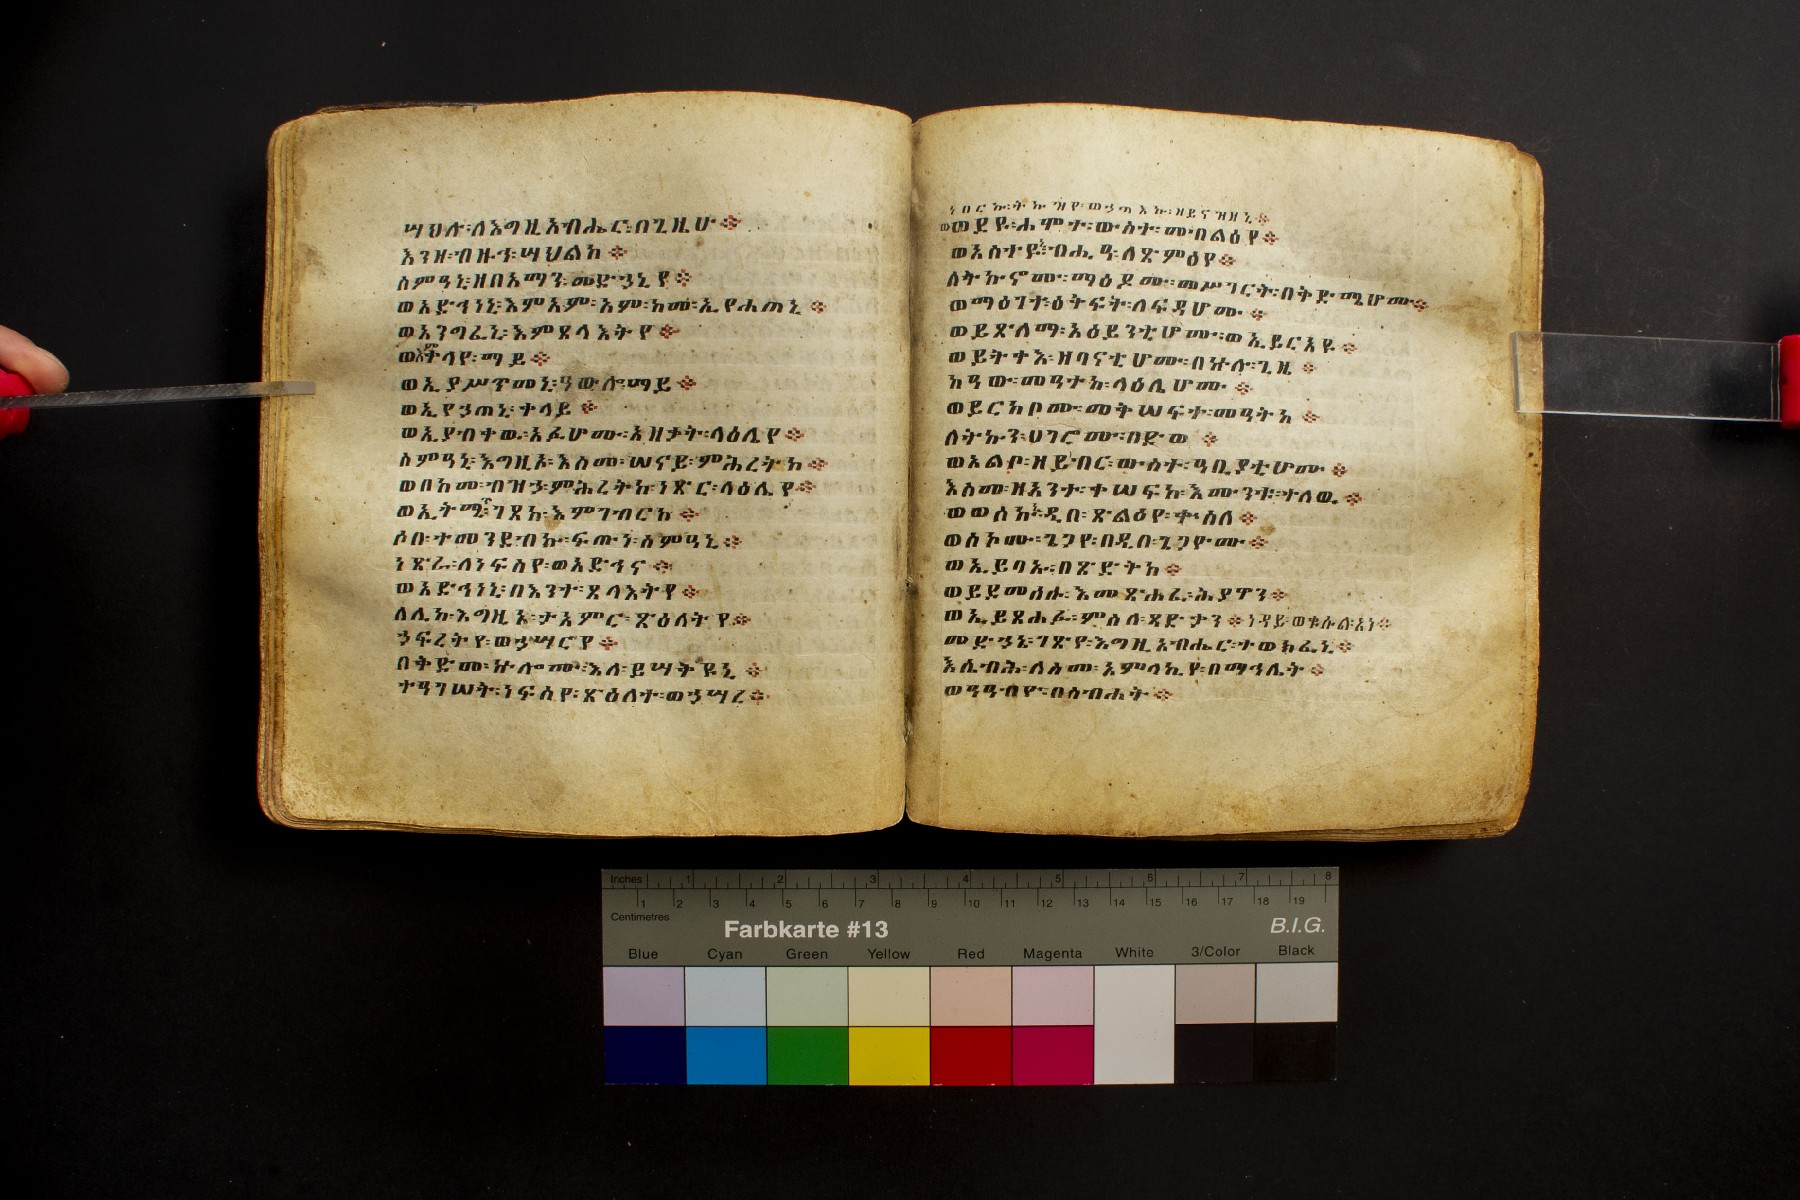 ሣህሉ፡ለእግዚአብሔር፡በጊዜሁ፨
እንዘ፡ብዙኅ፡ሣህልከ፨
ስምዓኒ፡ዘበአማን፡መድኃኒየ፨
ወአድኅነኒ፡እምዐም፡ዐም፡ከመ፡ኢየሐጠኒ፨
ወአንግፈኒ፡እምጸላእትየ፨
ማይ፨
ወኢያሥጥመኒ፡ዓውሎ፡ማይ፨
ወኢየኃጠኒ፡ቀላይ፨
ወኢያብቀወ፡አፈሆሙ፡አዘቃት፡ላዕሌየ፨
ስምዓኒ፡እግዚኦ፡እስመ፡ሠናይ፡ምሕረትከ፨
ወበከመ፡ብዝኃ፡ምሕረትከ፡ነጽር፡ላዕሌየ፨
ወኢትሚጥ፡ገጸከ፡እምገብርከ፨
ሶበ፡ተመንደብኩ፡ፍጡነ፡ስምዓኒ፨
ነጽራ፡ለነፍስየ፡ወአድኅና፨
ወአድኅነኒ፡በእንተ፡ጸላእትየ፨
ለሊከ፡እግዚኦ፡ታአምር፡ጽዕለትየ፨
ኃፍረትየ፡ወኃሣርየ፨
በቅድመ፡ኵሎሙ፡እለ፡ይሣቅዩኒ፨
ተዓገሠት፡ነፍስየ፡ጽዕለተ፡ወኃሣረ፨
ወወደዩ፡ሐሞተ፡ውስተ፡መብልዕየ፨
ወአስተዩኒ፡ብሒዓ፡ለጽምዕየ፨
ለትኩኖሙ፡ማዕዶሙ፡መሥገርተ፡በቅድሜሆሙ፨
ወማዕገተ፡ዕቅፍት፡ለፍዳሆሙ፨
ወይጸለማ፡አዕይንቲሆሙ፡ወኢይርአዩ፨
ወይትቀጻዕ፡ዘባናቲሆሙ፡በኵሉ፡ጊዜ፨
ከዓው፡መዓተከ፡ላዕሌሆሙ፨
ወይርከቦሙ፡መቅሠፍተ፡መዓትከ፨
ለትኩን፡ሀገሮሙ፡በድወ፨
ወአልቦ፡ዘይነብር፡ውስተ፡ዓቢያቲሆሙ፨
እስመ፡ዘአንተ፡ቀሠፍከ፡እሙንቱ፡ተለዉ፨
ወወሰኩኒ፡ዲበ፡ጽልዕየ፡ቍስለ፨
ወስኮሙ፡ጌጋየ፡በዲበ፡ጌጋዮሙ፨
ወኢይባኡ፡በጽድቅከ፨
ወይደመሰሱ፡እመጽሐፈ፡ሕያዋን፨
ወኢይጸሐፉ፡ምስለ፡ጻድቃን፨ነዳይ፡ወቍሱል፡አነ፨
መድኃኔ፡ገጽየ፡እግዚአብሔር፡ተወክፈኒ፨
እሴብሕ፡ለስመ፡አምላኪየ፡በማኅሌት፨
ወዓዓብዮ፡በስብሐት፨
Inches 1 2 3 4 5 6 7 8
1 2 3 4 5 6 7 8 9 10 11 12 13 14 15 16 17 18 19
Centimetres
Farbkarte #13
B.I.G.
Blue Cyan Green Yellow Red Magenta White 3/Color Black